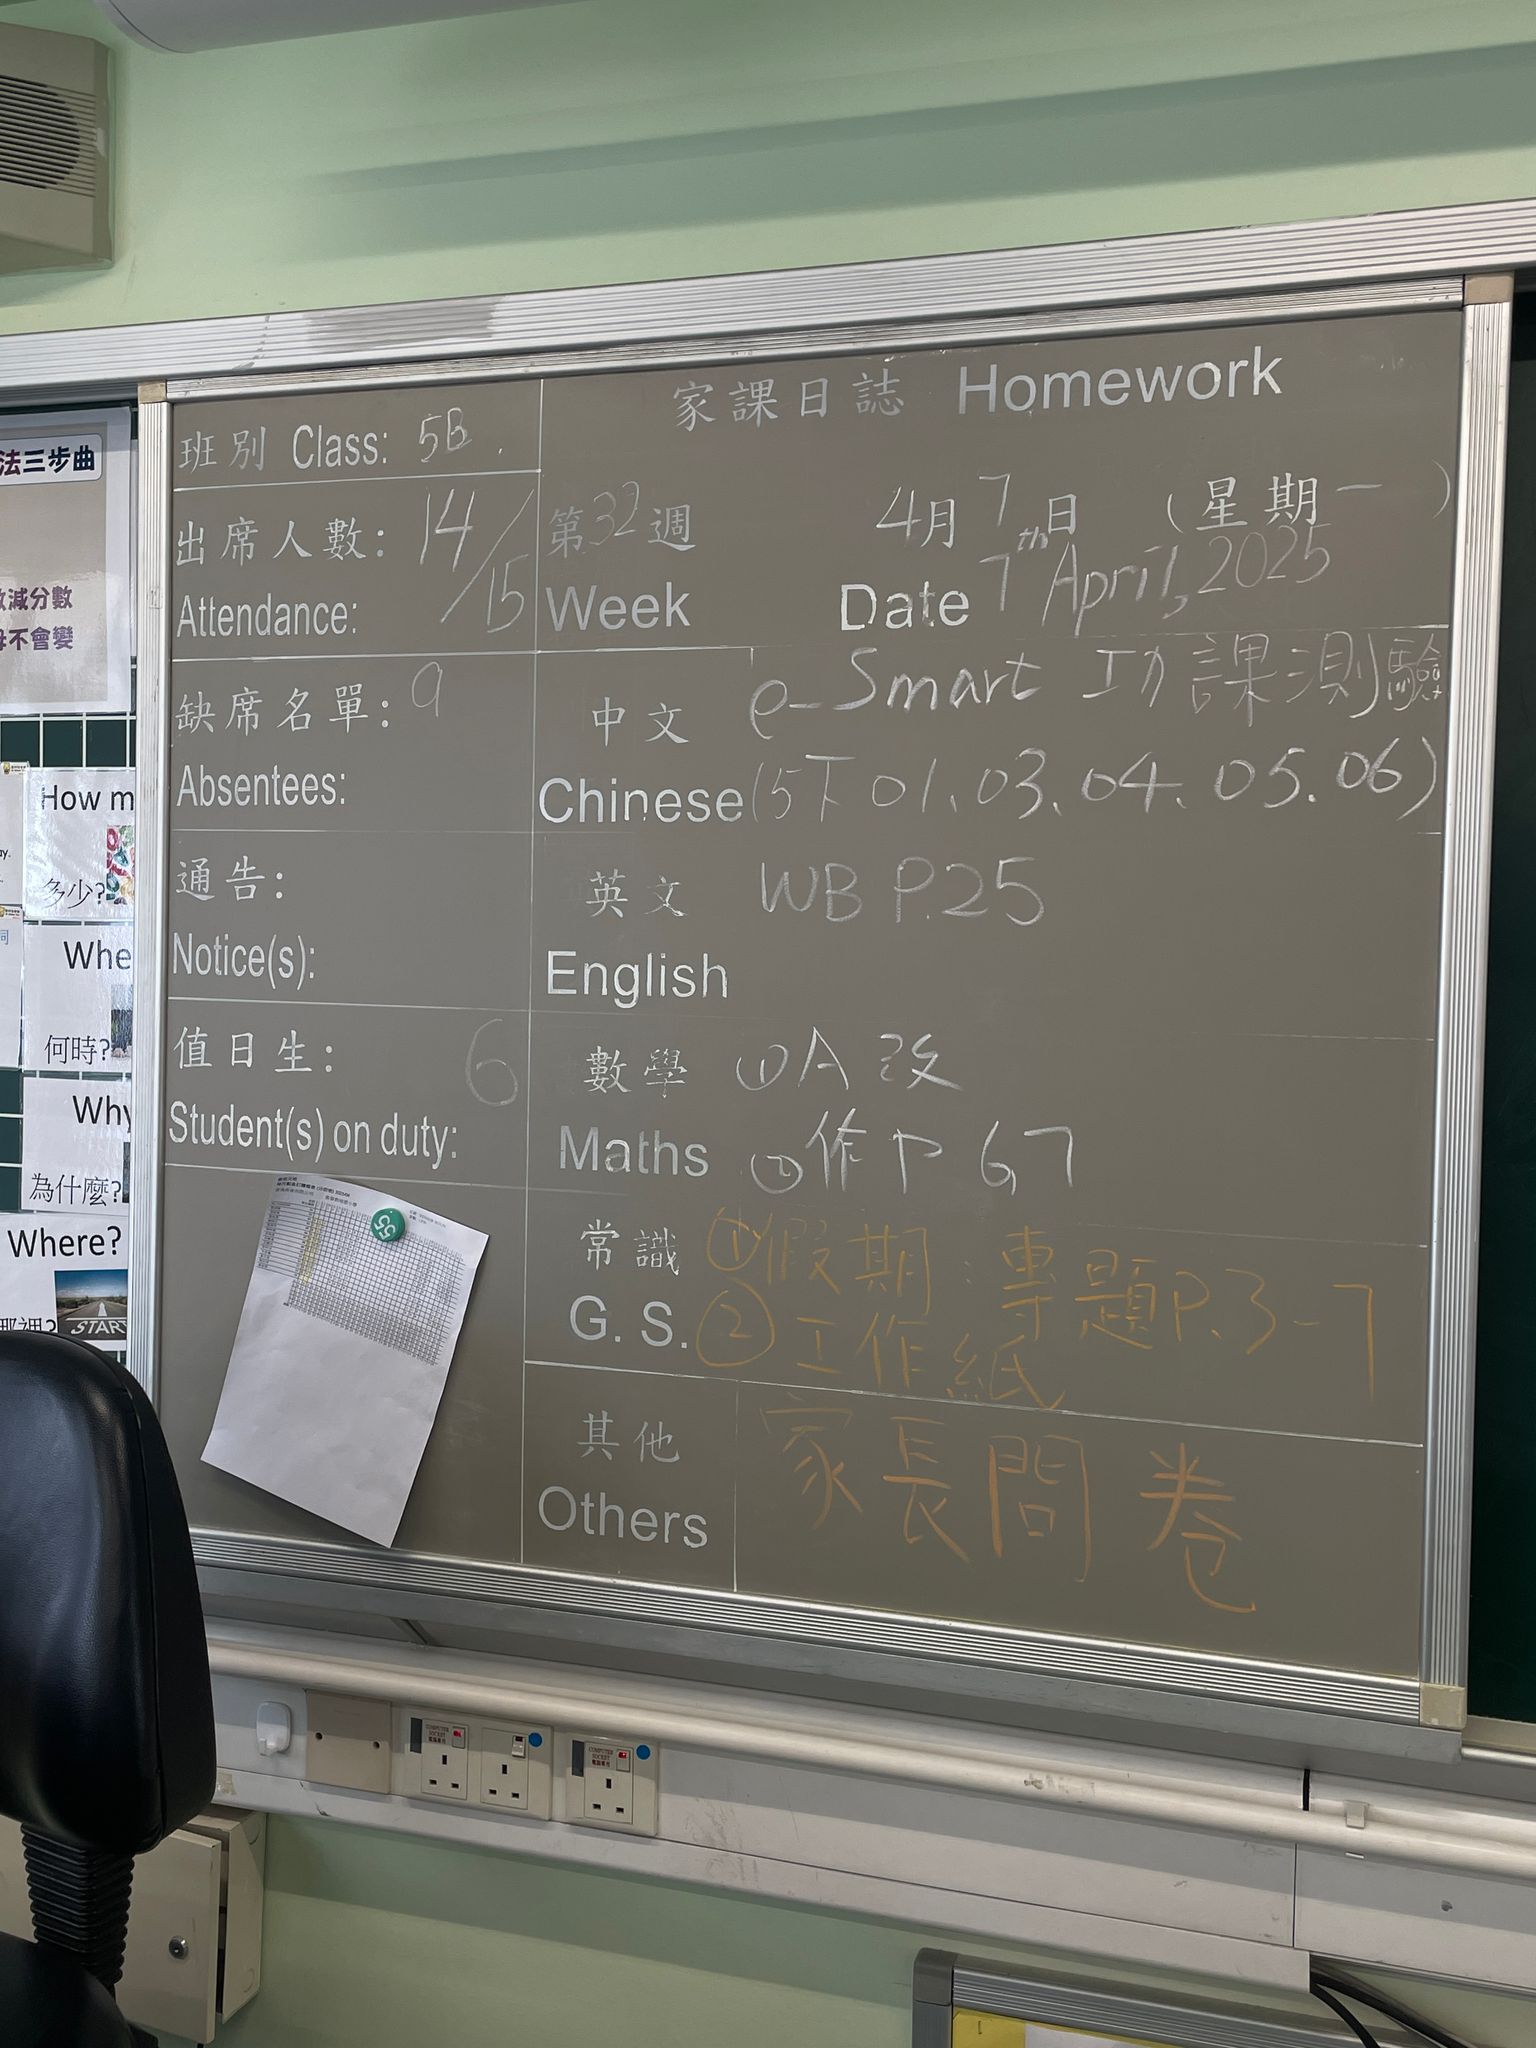 法三步曲
減分數
不會變
How m
多少?
Whe
何時?
Why
為什麼?
Where?
START
班別 Class: 5B.
出席人數: 14/15
Attendance:
缺席名單: 9
Absentees:
通告:
Notice(s):
值日生: 6
Student(s) on duty:
家課日誌 Homework
第32週 4月7日 (星期一)
Week Date 7th April, 2025
中文 e-Smart 功課測驗
Chinese (5下 01、03、04、05、06)
英文 WB P.25
English
數學 ①A 改
Maths ②作 P 6,7
常識 ①假期:專題P.3-7
G. S. ②工作紙
其他 家長問卷
Others
55
COMPUTER SOCKET
電腦專用
COMPUTER SOCKET
電腦專用